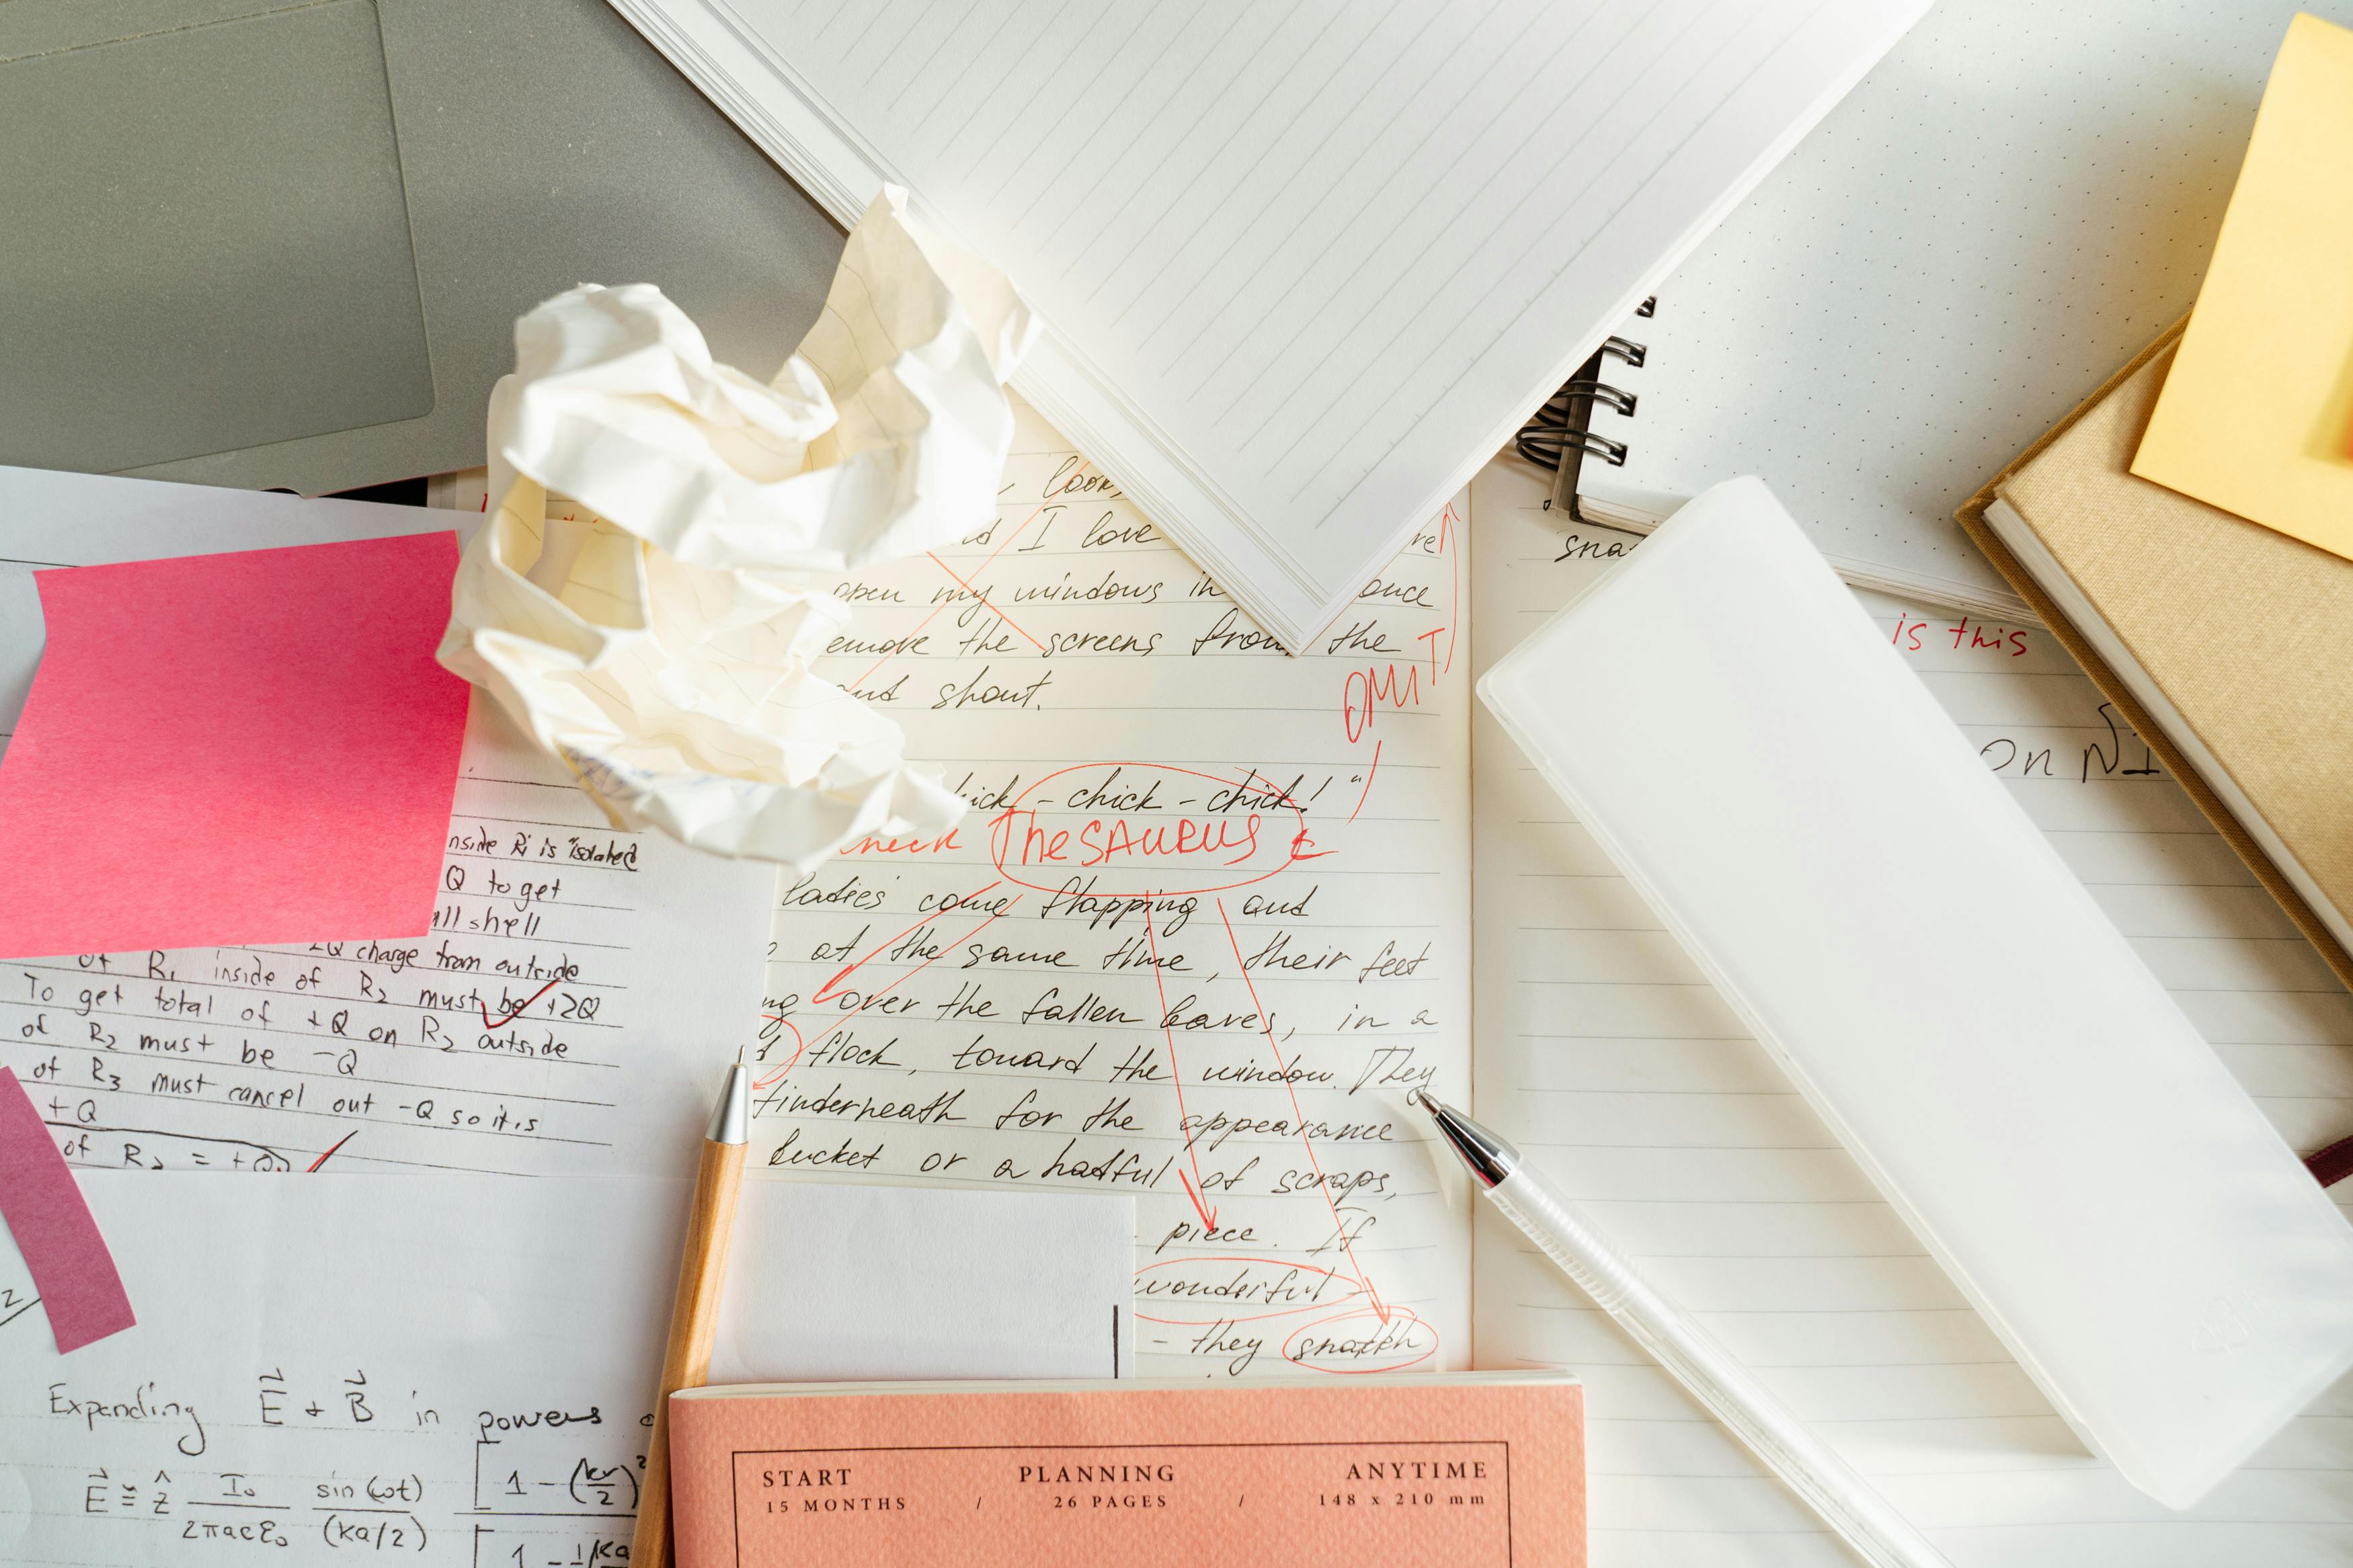 look,
I love
open my windows in once
remove the screens from the
and shout.
OMIT
- chick - chick! "
check TheSAURUS
ladies come flapping and
at the same time, their feet
over the fallen leaves, in a
flock, toward the window. They
underneath for the appearance
bucket or a hatful of scraps,
piece. If
wonderful
- they snatch
is this
on
inside Ri is "isolated
Q to get
shell
2Q charge from outside
of R₁ inside of R₂ must be +2Q
To get total of +Q on R₂ outside
of R₂ must be -Q
of R₃ must cancel out -Q so it is
+Q
of R₂ = +Q
Expanding E + B in powers
E ≅ ẑ I₀ / 2πacε₀ sin(ωt) / (ka/2) [1 - (kr/2)²
START PLANNING ANYTIME
15 MONTHS / 26 PAGES / 148 x 210 mm